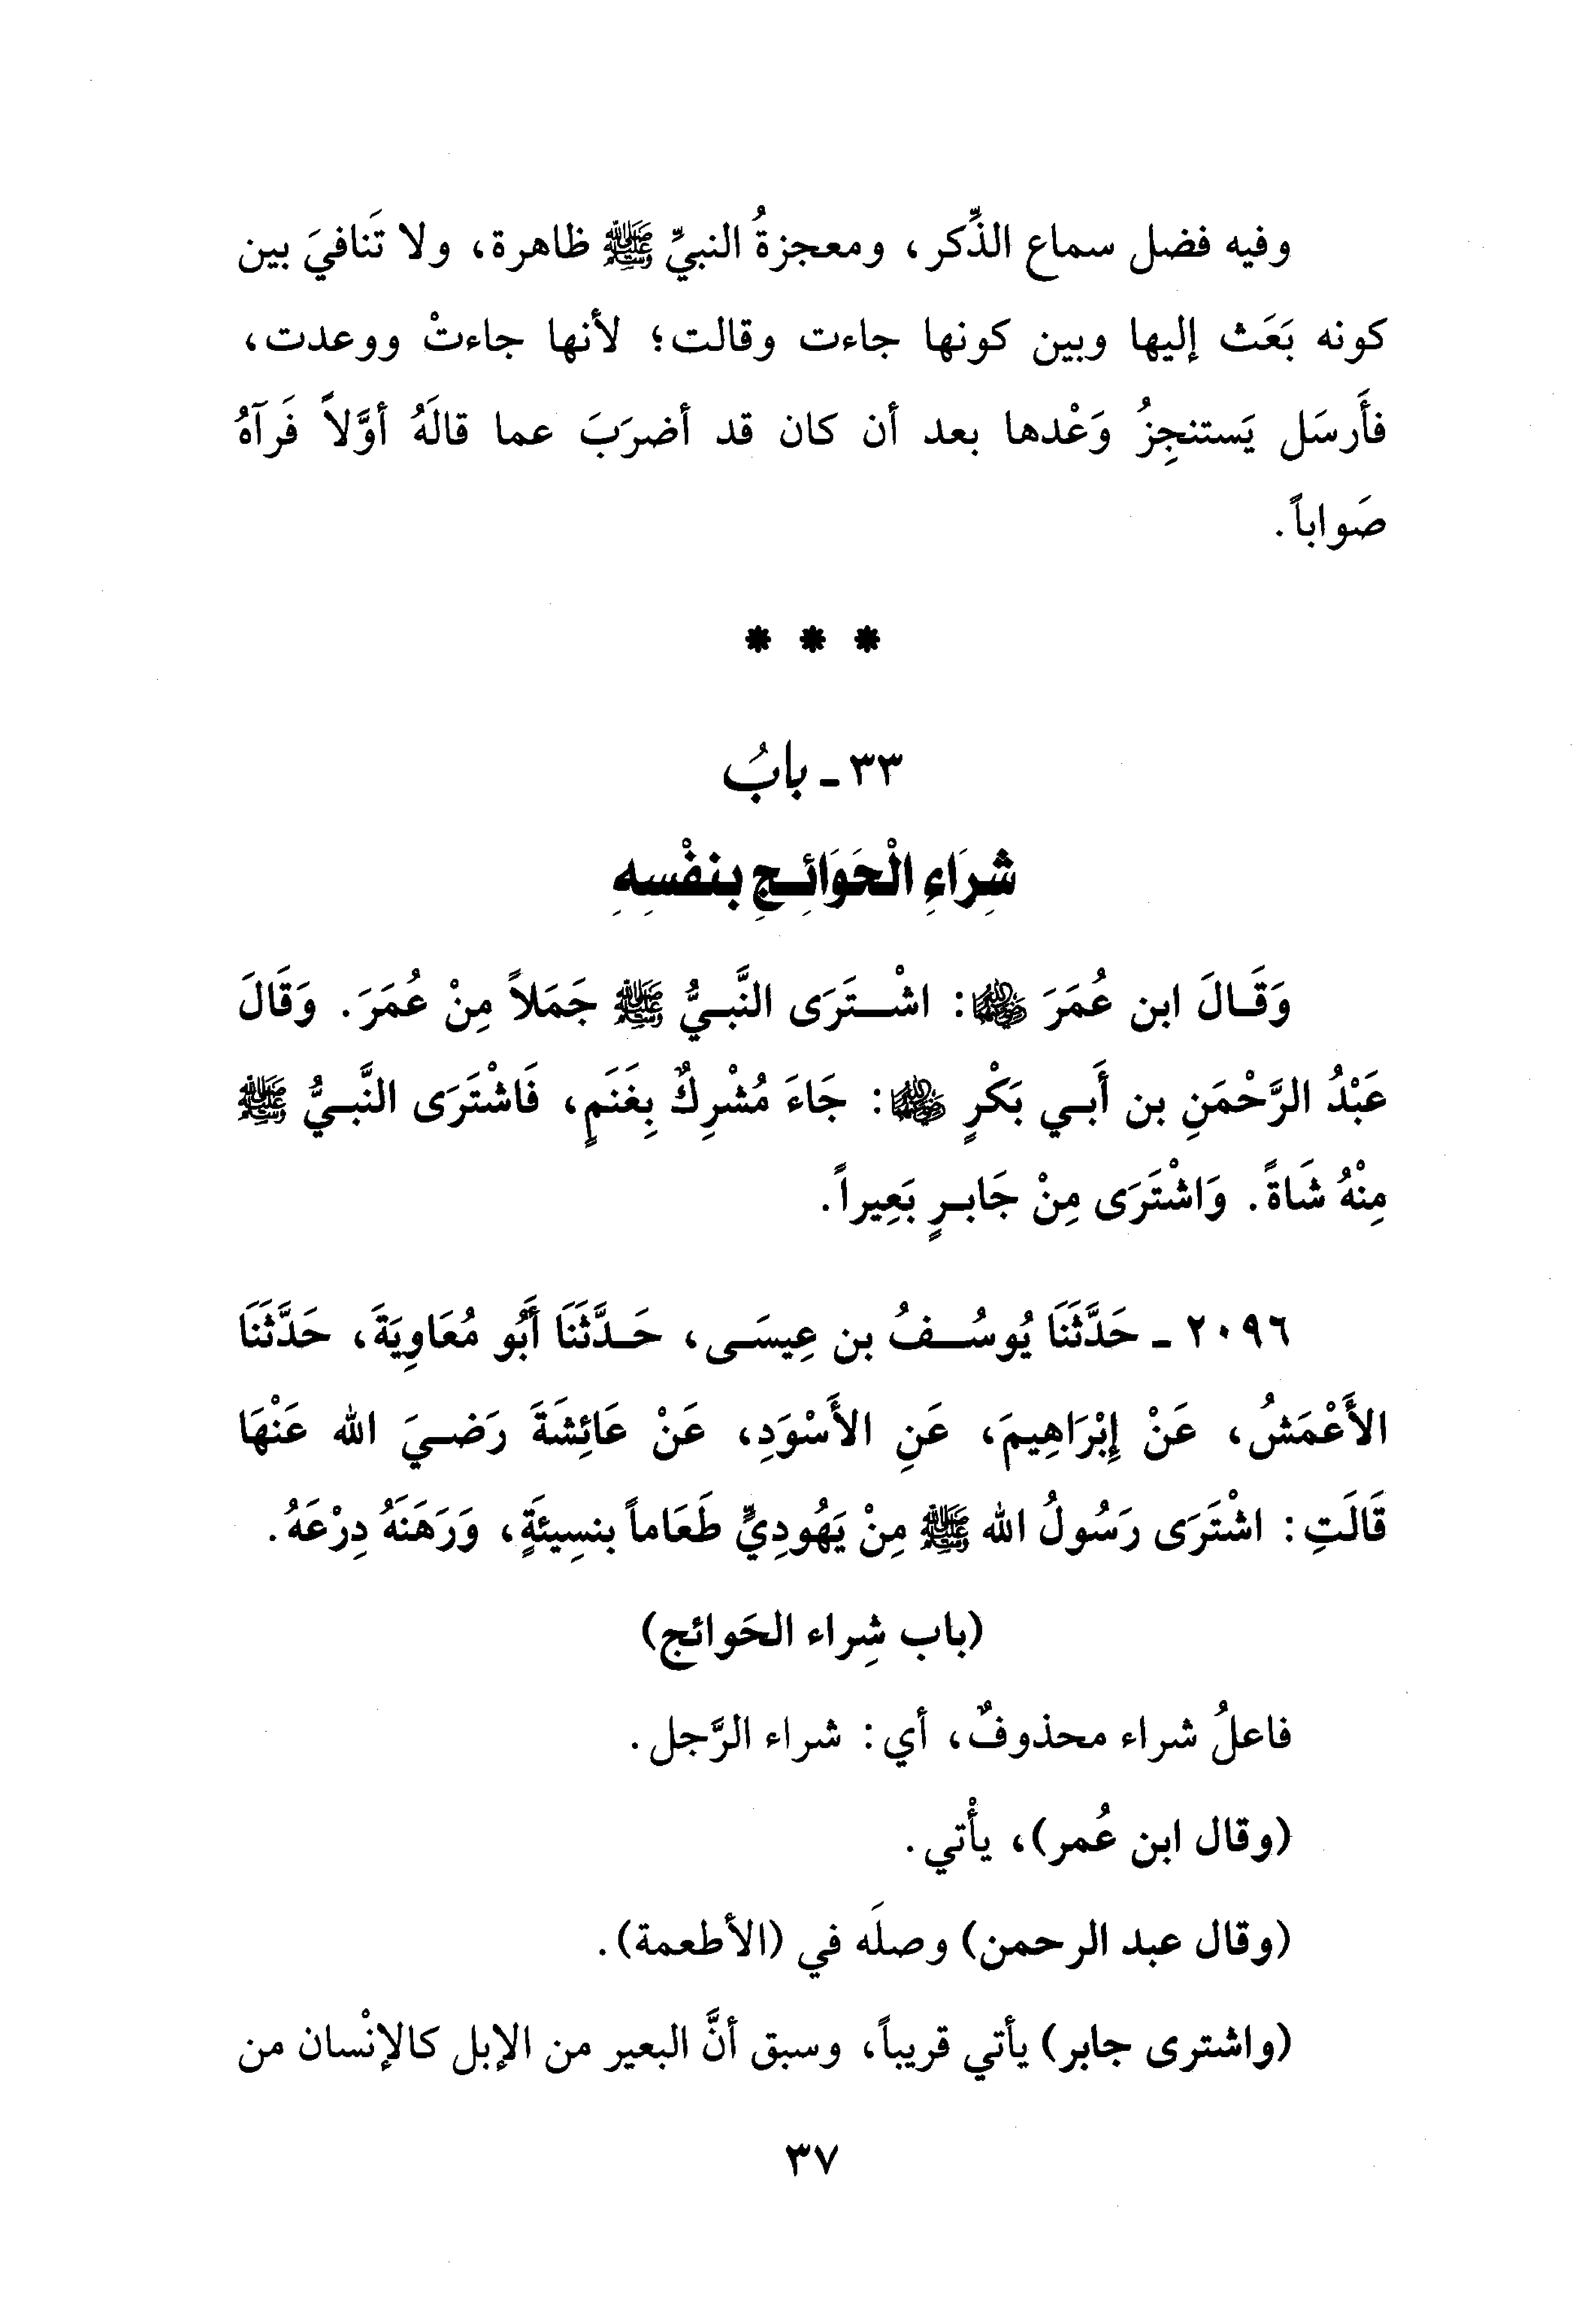 وفيه فضل سماع الذِّكر، ومعجزةُ النبيِّ ﷺ ظاهرة، ولا تَنافيَ بين
كونه بَعَث إليها وبين كونها جاءت وقالت؛ لأنها جاءتْ ووعدت،
فأَرسَل يَستنجِزُ وَعْدها بعد أن كان قد أضرَبَ عما قالَهُ أوَّلاً فَرآهُ
صَواباً.
* * *
٣٣ ـ بابُ
شِرَاءِ الْحَوَائِجِ بنفْسِهِ
وَقَالَ ابن عُمَرَ ﵄: اشْتَرَى النَّبيُّ ﷺ جَمَلاً مِنْ عُمَرَ. وَقَالَ
عَبْدُ الرَّحْمَنِ بن أَبي بَكْرٍ ﵄: جَاءَ مُشْرِكٌ بِغَنَمٍ، فَاشْتَرَى النَّبيُّ ﷺ
مِنْهُ شَاةً. وَاشْتَرَى مِنْ جَابرٍ بَعِيراً.
٢٠٩٦ ـ حَدَّثَنَا يُوسُفُ بن عِيسَى، حَدَّثَنَا أَبُو مُعَاوِيَةَ، حَدَّثَنَا
الأَعْمَشُ، عَنْ إِبْرَاهِيمَ، عَنِ الأَسْوَدِ، عَنْ عَائِشَةَ رَضيَ الله عَنْهَا
قَالَتِ: اشْتَرَى رَسُولُ الله ﷺ مِنْ يَهُودِيٍّ طَعَاماً بنسِيئَةٍ، وَرَهَنَهُ دِرْعَهُ.
(باب شِراء الحَوائج)
فاعلُ شراء محذوفٌ، أي: شراء الرَّجل.
(وقال ابن عُمر)، يأْتي.
(وقال عبد الرحمن) وصلَه في (الأطعمة).
(واشترى جابر) يأتي قريباً، وسبق أنَّ البعير من الإبل كالإنْسان من
٣٧